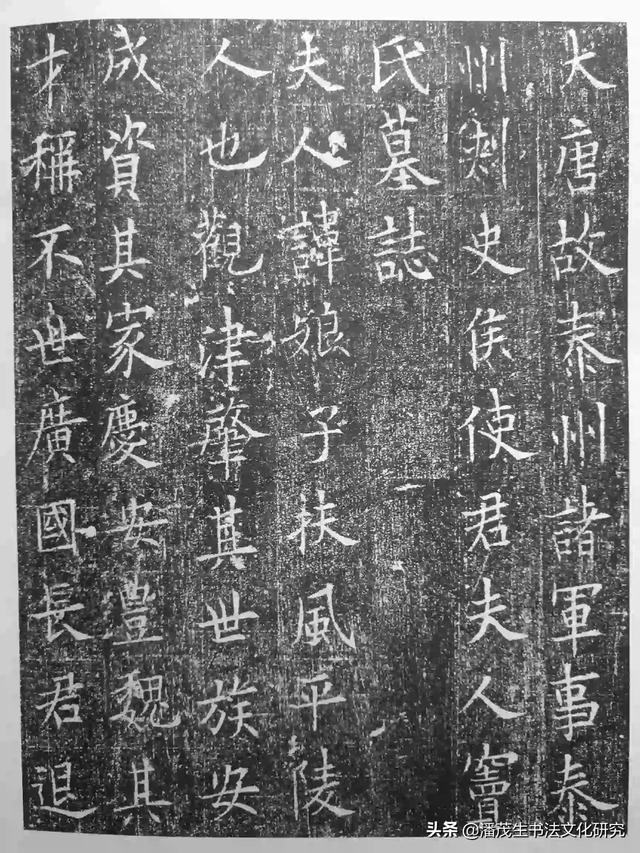 大唐故泰州諸軍事泰
州刺史侯使君夫人竇
氏墓誌
夫人諱娘子扶風平陵
人也觀津肇其世族安
成資其家慶安豊魏其
才稱不世廣國長君退
头条 @潘茂生书法文化研究